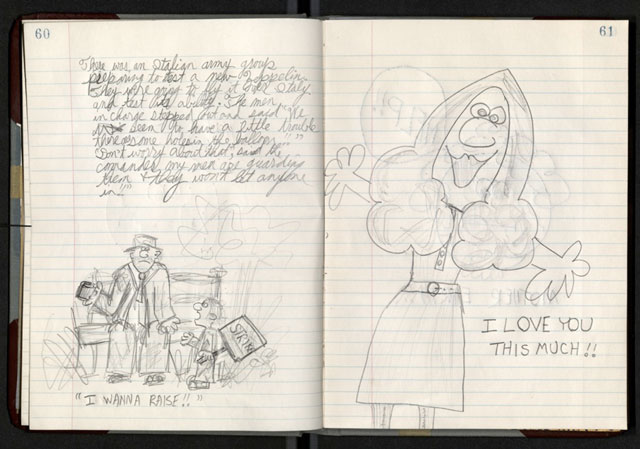 60
There was an Italian army group
preparing to test a new Zeppelin.
They were going to fly it over Italy
and test its ability. The men
in charge stepped out and said "We
seem to have a little trouble
some holes in the balloon!!"
"Don't worry about that", said the
comander, my men are guarding
them & they won't let anyone
in!!"
STRIKE
"I WANNA RAISE!!"
61
I LOVE YOU
THIS MUCH!!